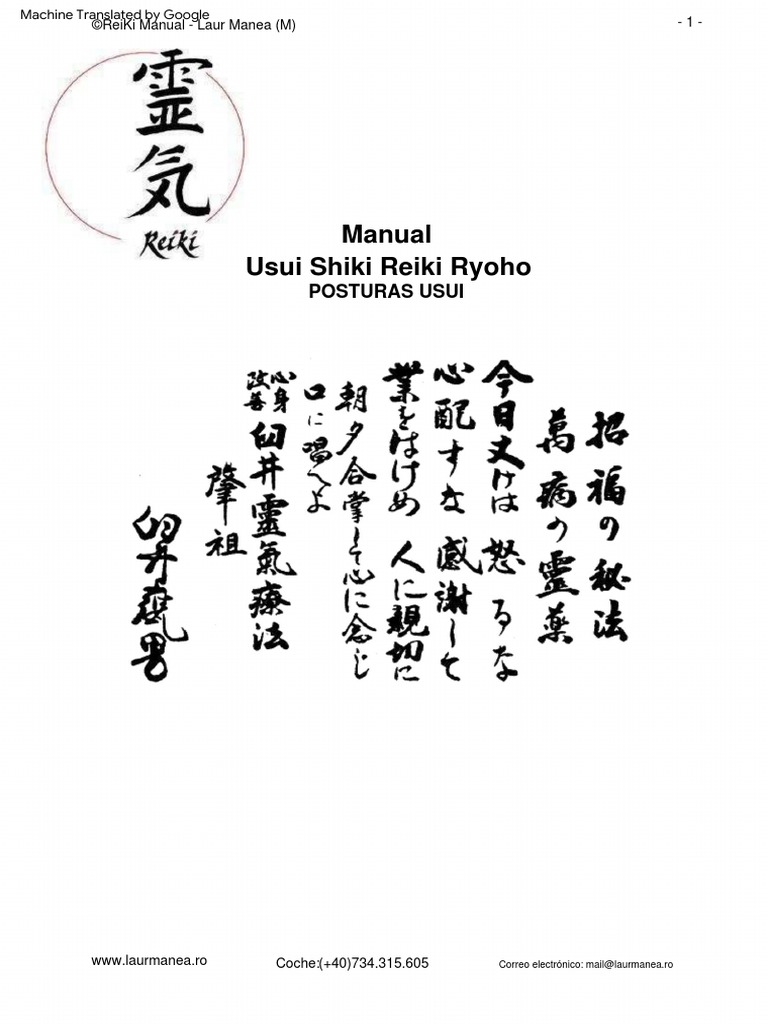 Machine Translated by Google
©ReiKi Manual - Laur Manea (M)
- 1 -
靈気
Reiki
Manual
Usui Shiki Reiki Ryoho
POSTURAS USUI
招福の秘法
萬病の靈薬
今日丈けは 怒るな
心配すな 感謝して
業をはけめ 人に親切に
朝夕合掌して心に念じ
口に唱へよ
心身
改善
臼井靈氣療法
肇祖
臼井甕男
www.laurmanea.ro
Coche:(+40)734.315.605
Correo electrónico: mail@laurmanea.ro